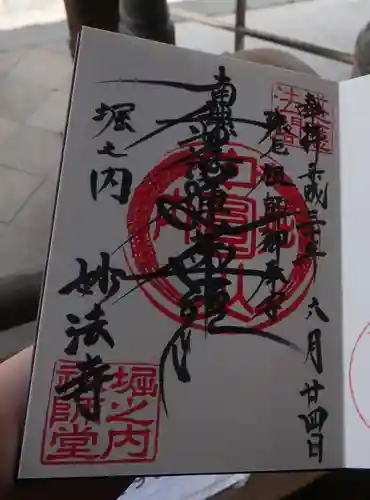 奉拝 平成三十年 六月廿四日
除厄祖師
南無妙法蓮華経
堀之内
妙法寺
堀之内
祖師堂